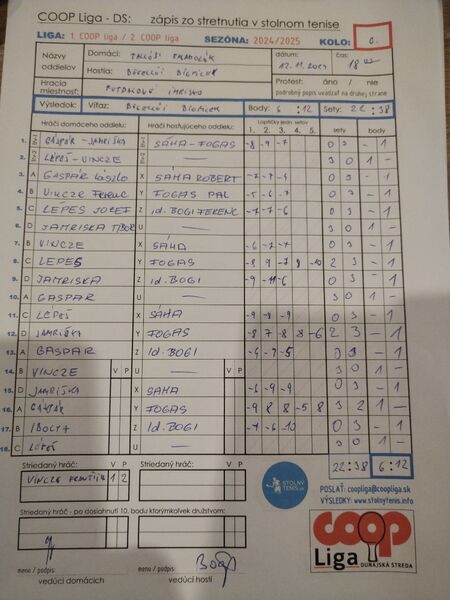 COOP Liga - DS: zápis zo stretnutia v stolnom tenise
LIGA: 1. COOP liga / 2. COOP liga SEZÓNA: 2024/2025 KOLO: 8.
Názvy oddielov
Domáci:
Hostia:
dátum: čas: 18 00
Hracia miestnosť:
Protest: áno / nie
podrobný popis uvádzať na druhej strane
Výsledok: Víťaz: Body: 6 : 12 Sety: 22 : 38
Hráči domáceho oddielu: Hráči hosťujúceho oddielu: Loptičky jedn. setov sety body
1. 2. 3. 4. 5.
1. GÁSPÁR - JAMRIŠKA SÁHA - FOGAS -8 -9 -7 0 3 - 1
2. LÉPES - VINCZE — 3 0 1 -
3. A GASPÁR LÁSZLO X SÁHA ROBERT -7 -2 -7 0 3 - 1
4. B VINCZE FERENC Y FOGAS PÁL -5 -6 -7 0 3 - 1
5. C LÉPES JOZEF Z id. BOGI FERENC -7 -7 -6 0 3 - 1
6. D JAMRISKA TIBOR U — 3 0 1 -
7. B VINCZE X SÁHA -6 -7 -7 0 3 - 1
8. C LEPES Y FOGAS 2 3 - 1
9. D JAMRISKA Z id. BOGI -9 -11 -6 0 3 - 1
10. A GASPAR U — 3 0 1 -
11. C LÉPEŠ X SÁHA -9 -8 -9 0 3 - 1
12. D JAMRIŠKA Y FOGAS -8 7 -8 8 -6 2 3 - 1
13. A GASPAR Z Id. BOGI -4 -7 -5 0 3 - 1
14. B VINCZE U — 3 0 1 -
15. D JAMRIŠKA X SAHA -6 -9 -9 0 3 - 1
16. A GÁSPÁR Y FOGAS -9 8 8 -5 8 3 2 1 -
17. B Z id. BOGI -7 -6 -10 0 3 - 1
18. C LÉPEŠ U — 3 0 1 -
22 : 38 6 : 12
Striedaný hráč: V P Striedaný hráč: V P
VINCZE 1 2
STOLNÝ TENIS.sk
POSLAŤ: coopliga@coopliga.sk
VÝSLEDKY: www.stolnytenis.info
Striedaný hráč - po dosiahnutí 10. bodu ktorýmkoľvek družstvom:
coop
Liga
DUNAJSKÁ STREDA
meno / podpis meno / podpis
vedúci domácich vedúci hostí